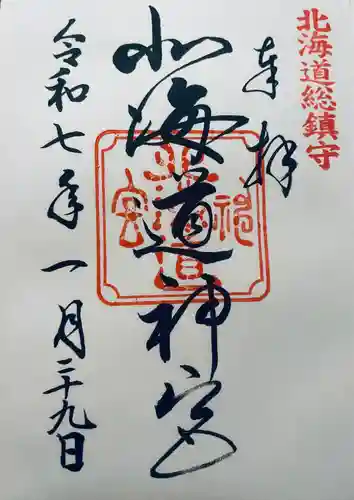 北海道総鎮守
奉拝
北海道神宮
令和七年一月二十九日
北海道神宮